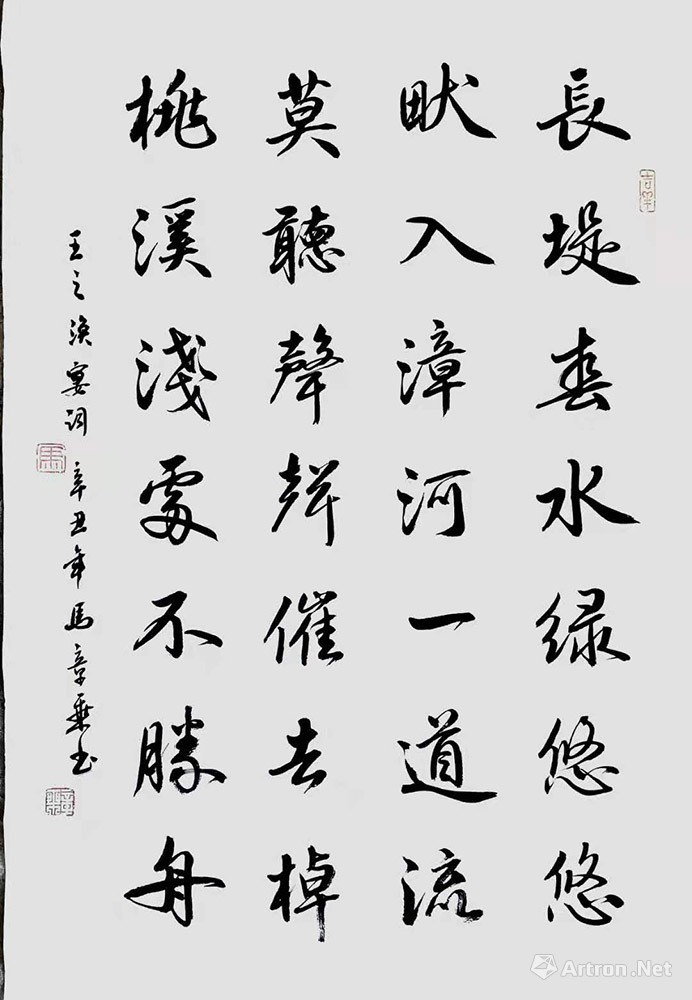 長堤春水綠悠悠
畎入漳河一道流
莫聽聲聲催去棹
桃溪淺處不勝舟
王之渙宴詞 辛丑年馬章乘书
Artron.Net